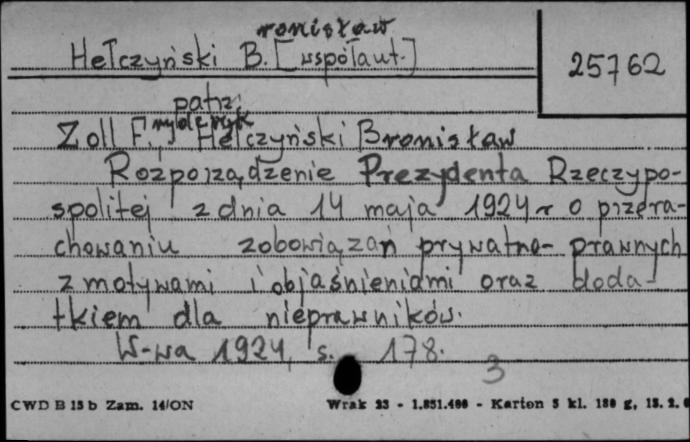 ronisław
Hełczyński B. [współaut.]
25762
patrz:
Zoll F., Hełczyński Bronisław
Rozporządzenie Prezydenta Rzeczypo-
spolitej z dnia 14 maja 1924 r o przera-
chowaniu zobowiązań prywatno-prawnych
z motywami i objaśnieniami oraz doda-
tkiem dla nieprawników.
W-wa 1924, s. 178.
3
CWD B 15 b Zam. 14/ON Wrak 23 - 1.851.400 - Karton 5 kl. 180 g,